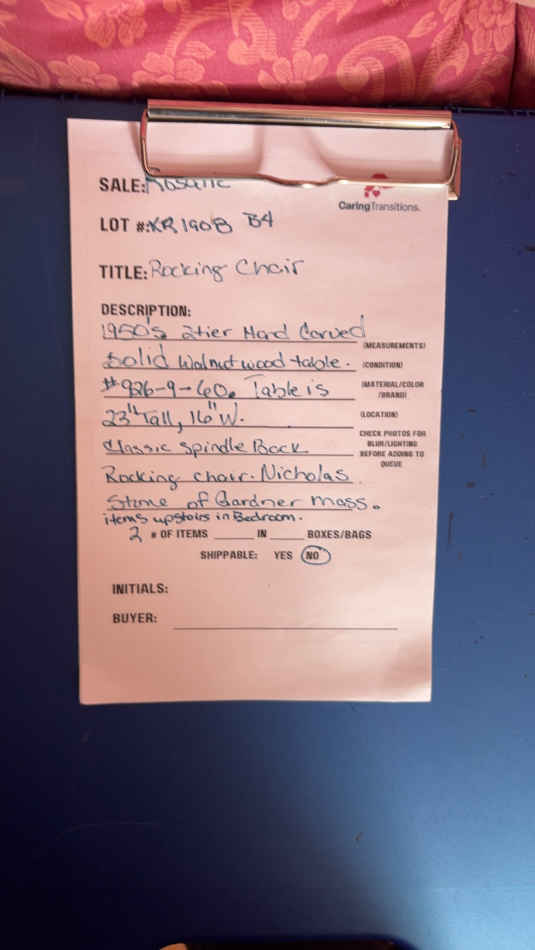 SALE:
CaringTransitions.
LOT #: KR190B B4
TITLE: Rocking Chair
DESCRIPTION:
1950's 2tier Hand Carved
(MEASUREMENTS)
Solid Walnut wood table.
(CONDITION)
#926-9-60. Table is
(MATERIAL/COLOR
/BRAND)
23" Tall, 16" W.
(LOCATION)
Classic Spindle Back
CHECK PHOTOS FOR
BLUR/LIGHTING
BEFORE ADDING TO
QUEUE
Rocking chair. Nicholas
Stone of Gardner Mass.
items upstairs in Bedroom.
2 # OF ITEMS ____ IN ____ BOXES/BAGS
SHIPPABLE: YES NO
INITIALS:
BUYER: